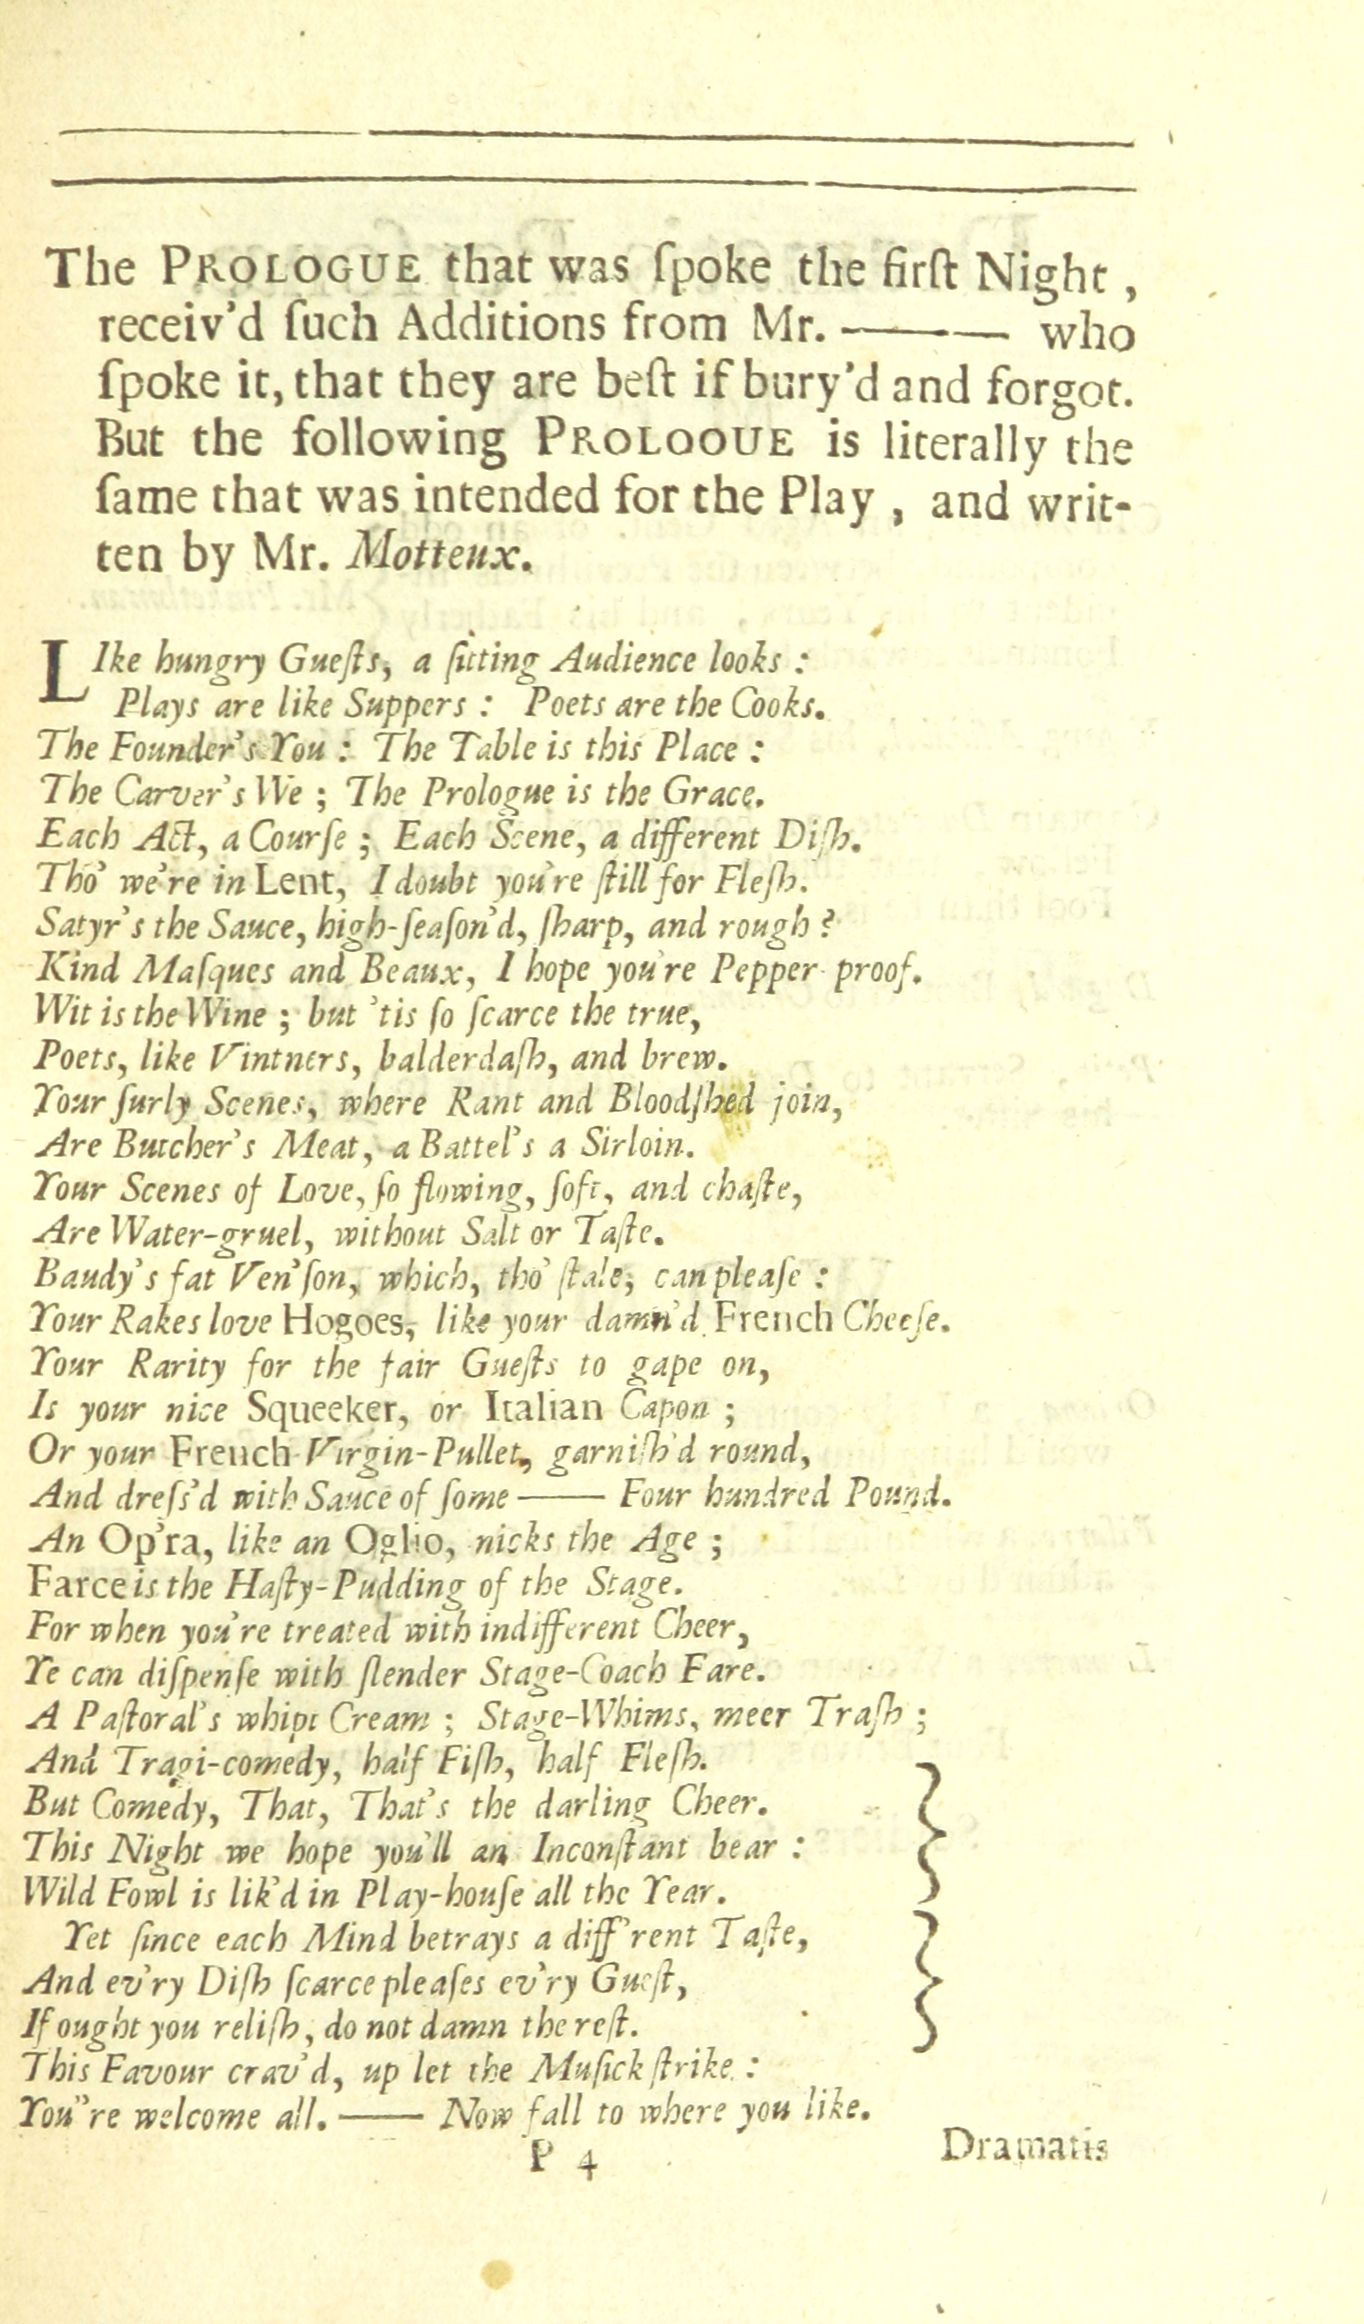 The PROLOGUE that was ſpoke the firſt Night,
receiv'd ſuch Additions from Mr. ——— who
ſpoke it, that they are beſt if bury'd and forgot.
But the following PROLOOUE is literally the
ſame that was intended for the Play, and writ-
ten by Mr. Motteux.
LIke hungry Gueſts, a ſitting Audience looks :
Plays are like Suppers : Poets are the Cooks.
The Founder's You : The Table is this Place :
The Carver's We ; The Prologue is the Grace.
Each Act, a Courſe ; Each Scene, a different Diſh.
Tho' we're in Lent, I doubt you're ſtill for Fleſh.
Satyr's the Sauce, high-ſeaſon'd, ſharp, and rough ?
Kind Maſques and Beaux, I hope you're Pepper-proof.
Wit is the Wine ; but 'tis ſo ſcarce the true,
Poets, like Vintners, balderdaſh, and brew.
Your ſurly Scenes, where Rant and Bloodſhed join,
Are Butcher's Meat, a Battel's a Sirloin.
Your Scenes of Love, ſo flowing, ſoft, and chaſte,
Are Water-gruel, without Salt or Taſte.
Baudy's fat Ven'ſon, which, tho' ſtale, can pleaſe :
Your Rakes love Hogoes, like your damn'd French Cheeſe.
Your Rarity for the fair Gueſts to gape on,
Is your nice Squeeker, or Italian Capon ;
Or your French Virgin-Pullet, garniſh'd round,
And dreſs'd with Sauce of ſome —— Four hundred Pound.
An Op'ra, like an Oglio, nicks the Age ;
Farce is the Haſty-Pudding of the Stage.
For when you're treated with indifferent Cheer,
Ye can diſpenſe with ſlender Stage-Coach Fare.
A Paſtoral's whipt Cream ; Stage-Whims, meer Traſh ;
And Tragi-comedy, half Fiſh, half Fleſh.
But Comedy, That, That's the darling Cheer.
This Night we hope you'll an Inconſtant bear :
Wild Fowl is lik'd in Play-houſe all the Year.
Yet ſince each Mind betrays a diff'rent Taſte,
And ev'ry Diſh ſcarce pleaſes ev'ry Gueſt,
If ought you reliſh, do not damn the reſt.
This Favour crav'd, up let the Muſick ſtrike :
You''re welcome all. —— Now fall to where you like.
P 4
Dramatis